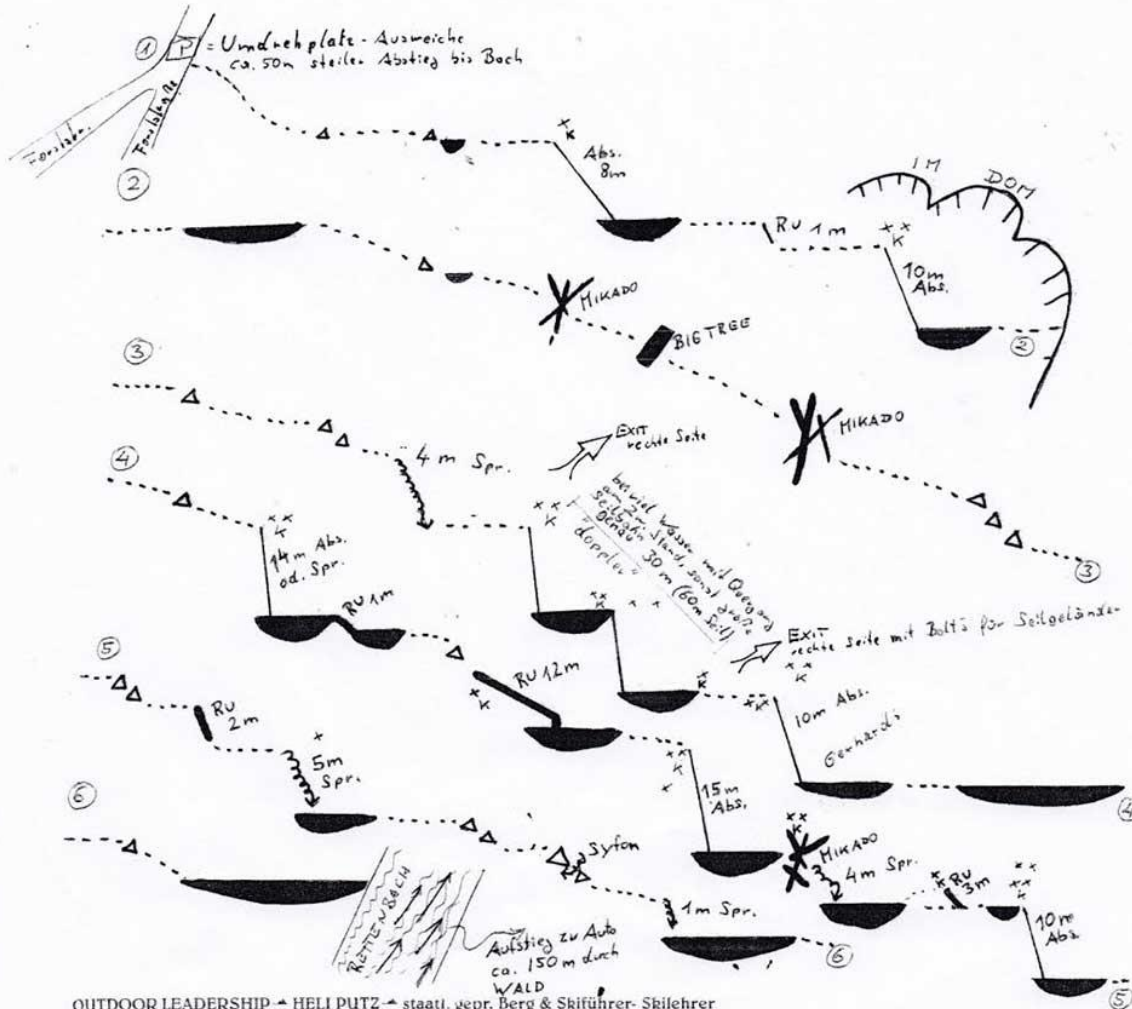 ① P = Umdrehplatz - Ausweiche
ca. 50m steiler Abstieg bis Bach
Forststr.
Forststraße
K
Abs.
8m
IM DOM
②
RU 1m
K
10m
Abs.
②
MIKADO
BIG TREE
MIKADO
③
4m Spr.
EXIT
rechte Seite
③
④
K
14m Abs.
od. Spr.
RU 1m
K
bei viel Wasser mit Quergang
am 2m. Stand, sonst große
Seilbahn
genau 30m (60m Seil)
"doppler"
K
EXIT
rechte Seite mit Bolts für Seilgeländer
RU 12m
K
K
K
10m Abs.
Gerhards
④
⑤
RU
2m
5m
Spr.
K
15m
Abs.
K
MIKADO
4m Spr.
RU
3m
K
10m
Abs.
⑤
⑥
Syfon
1m Spr.
⑥
ROTTENBACH
Aufstieg zu Auto
ca. 150m durch
WALD
OUTDOOR LEADERSHIP HELI PUTZ staatl. gepr. Berg & Skiführer- Skilehrer